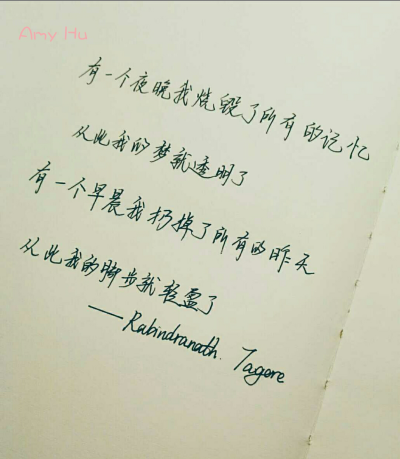 Amy Hu
有一个夜晚我烧毁了所有的记忆
从此我的梦就透明了
有一个早晨我扔掉了所有的昨天
从此我的脚步就轻盈了
——Rabindranath. Tagore